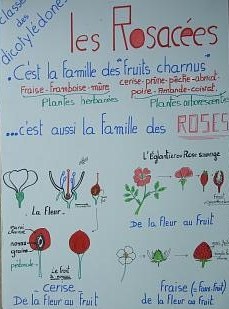 classe des
dicotylédones
les Rosacées
. C'est la famille des "fruits charnus"
fraise - framboise - mûre
cerise - prune - pêche - abricot
poire - Amande - coing.
Plantes herbacées
Plantes arborescentes
...c'est aussi la famille des ROSES
L'Eglantier ou Rose sauvage
La fleur
De la fleur au fruit
noyau
graine
pédoncule
Le fruit
- cerise -
De la fleur au fruit
fraise (= faux-fruit)
de la fleur au fruit